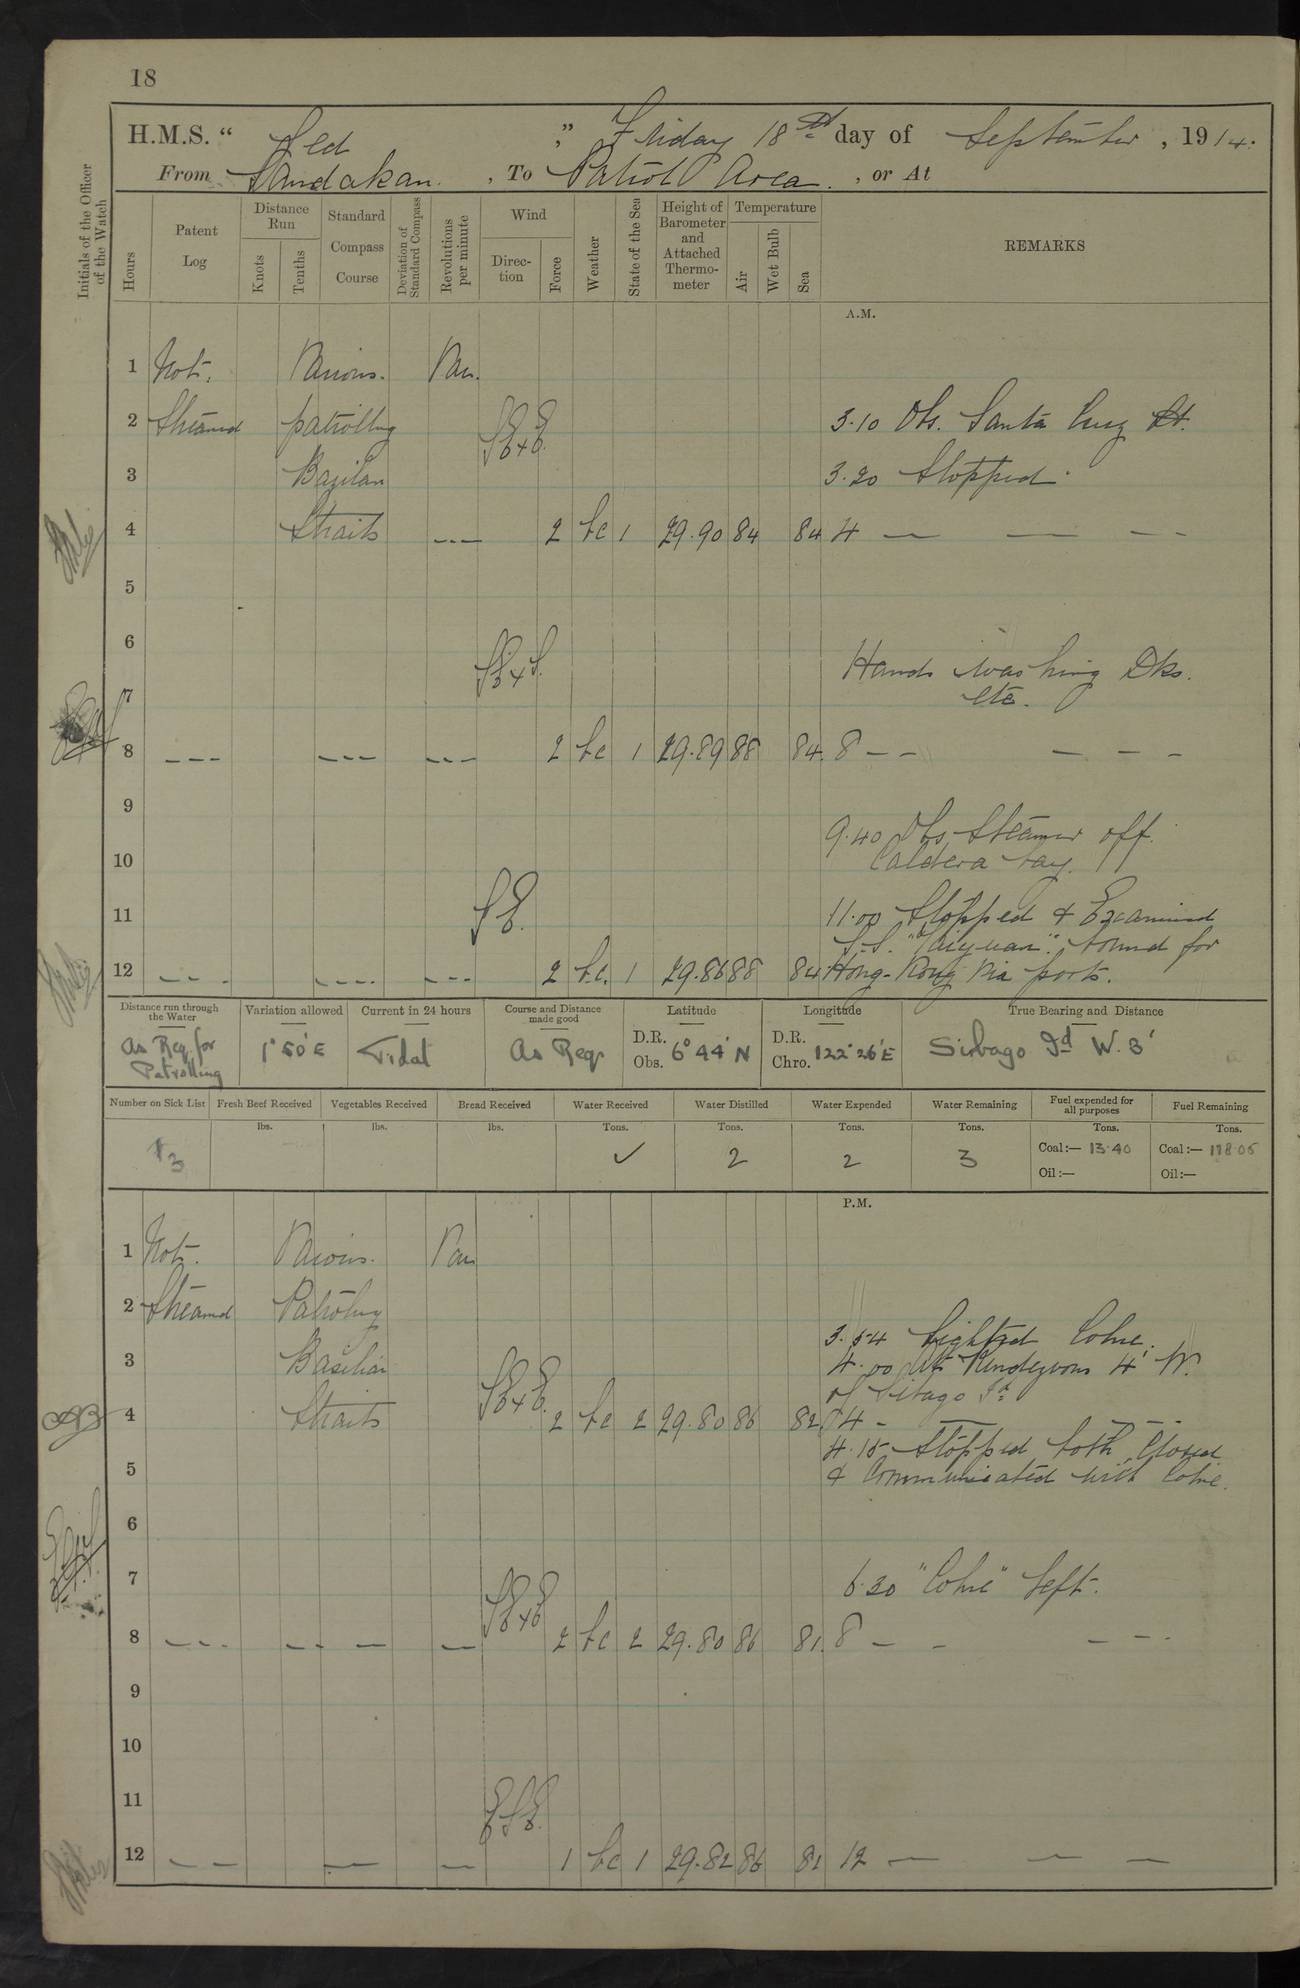 18
H.M.S. " Jed " Friday 18th day of September, 1914.
From Sandakan, To Patrol Area, or At
Initials of the Officer of the Watch
Hours
Patent Log
Distance Run
Knots
Tenths
Standard Compass Course
Deviation of Standard Compass
Revolutions per minute
Wind
Direction
Force
Weather
State of the Sea
Height of Barometer and Attached Thermometer
Temperature
Air
Wet Bulb
Sea
REMARKS
A.M.
1 Not. Various. Var.
2 Steamed patrolling SE x E. 3.10 Obs. Santa Cruz Lt.
3 Basilan 3.20 Stopped.
4 Straits --- 2 bc 1 29.90 84 84 4 — — - -
5
6
SE x S. Hands washing Dks.
7 etc.
8 --- --- --- 2 bc 1 29.89 88 84. 8 - - — - -
9
9.40 Obs Steamer off.
10 Caldera bay.
11 SE. 11.00 Stopped & Examined
S.S. "Taiyuan". bound for
12 --- ---- --- 2 bc. 1 29.86 88 84 Hong-Kong via ports.
Distance run through the Water
As Req. for Patrolling
Variation allowed
1° 50' E
Current in 24 hours
Tidal
Course and Distance made good
As Reqr
Latitude
D.R.
Obs. 6° 44' N
Longitude
D.R.
Chro. 122° 26' E
True Bearing and Distance
Sibago Id W. 3'
Number on Sick List
3
Fresh Beef Received
lbs.
Vegetables Received
lbs.
Bread Received
lbs.
Water Received
Tons.
✓
Water Distilled
Tons.
2
Water Expended
Tons.
2
Water Remaining
Tons.
3
Fuel expended for all purposes
Tons.
Coal:— 13.40
Oil:—
Fuel Remaining
Tons.
Coal:— 118.05
Oil:—
P.M.
1 Not. Various. Var
2 Steamed Patrolling
3.54 Sighted Colne.
3 Basilan 4.00 At Rendezvous 4' W.
SE x E. of Sibago Id
4 Straits 2 bc 2 29.80 86 82 4 - — - -
4.15 Stopped both. Closed
5 & Communicated with Colne.
6
7 6.30 "Colne" left.
SE x E
8 --- -- — — 2 bc 2 29.80 86 81. 8 — - - --
9
10
11 ESE.
12 — — — — 1 bc 1 29.82 86 81 12 — — —